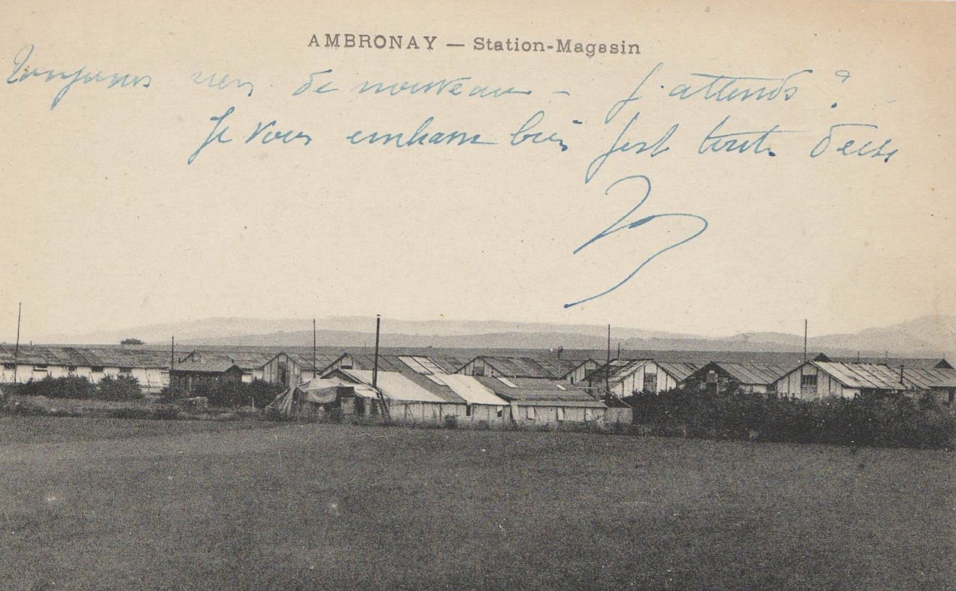 AMBRONAY — Station-Magasin
Toujours rien de nouveau - J'attends ?
Je vous embrasse bien fort toutes deux